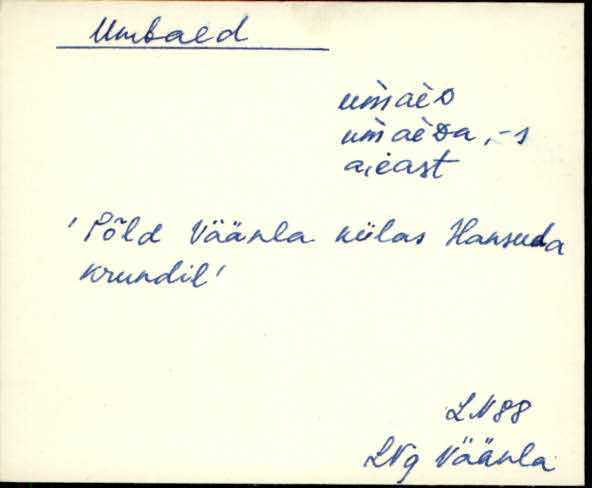 Umbaed
um̀aèD
um̀aèDa, -s
aiast
'Põld Väänla külas Hansuda
krundil'
LN88
LNg Väänla